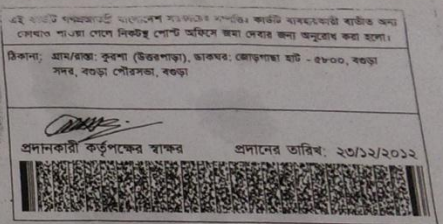 এই কার্ডটি গণপ্রজাতন্ত্রী বাংলাদেশ সরকারের সম্পত্তি। কার্ডটি ব্যবহারকারী ব্যতীত অন্য
কোথাও পাওয়া গেলে নিকটস্থ পোস্ট অফিসে জমা দেবার জন্য অনুরোধ করা হলো।
ঠিকানা: গ্রাম/রাস্তা: কুরশা (উত্তরপাড়া), ডাকঘর: জোড়গাছা হাট - ৫৮০০, বগুড়া
সদর, বগুড়া পৌরসভা, বগুড়া
প্রদানকারী কর্তৃপক্ষের স্বাক্ষর প্রদানের তারিখ: ২৩/১২/২০১২